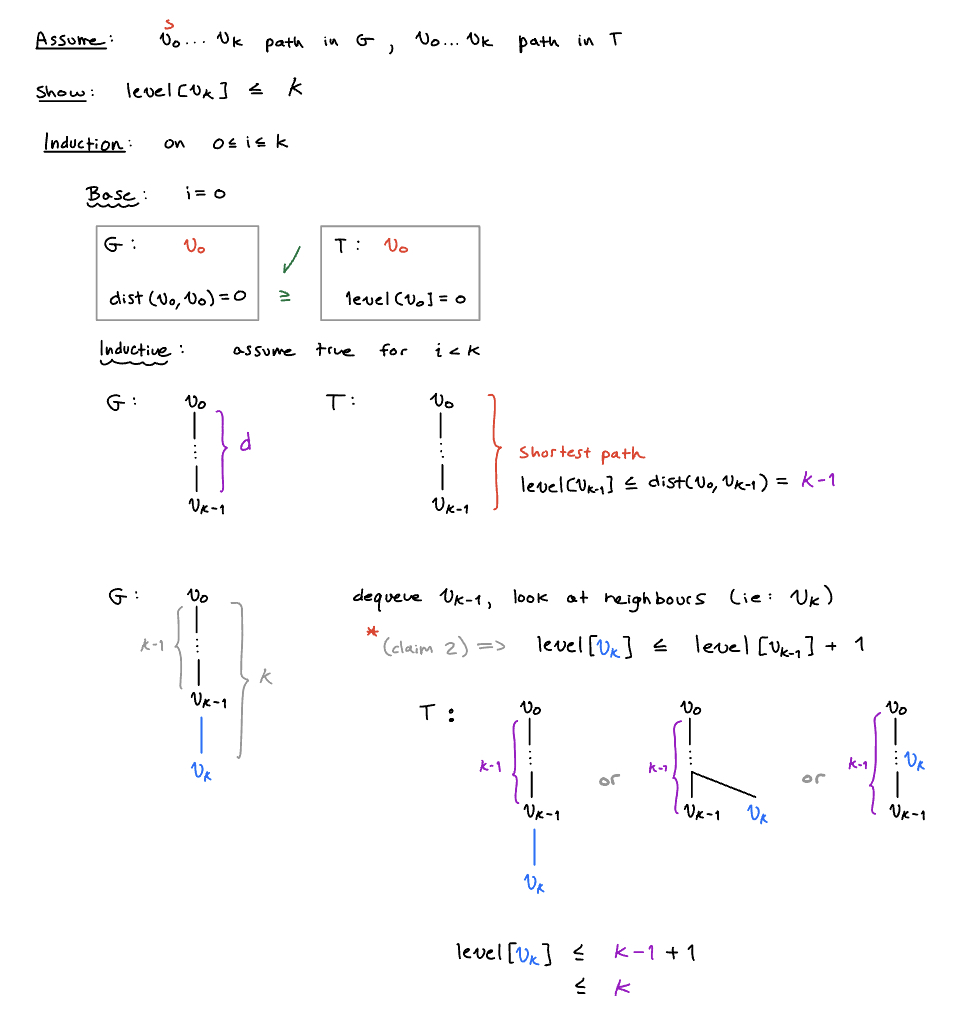 Assume: s v₀... vₖ path in G, v₀... vₖ path in T
Show: level[vₖ] ≤ k
Induction: on 0 ≤ i ≤ k
Base: i = 0
G: v₀
dist(v₀, v₀) = 0
✓
≥
T: v₀
level[v₀] = 0
Inductive: assume true for i < k
G: v₀
⋮
vₖ₋₁
d
T: v₀
⋮
vₖ₋₁
Shortest path
level[vₖ₋₁] ≤ dist(v₀, vₖ₋₁) = k-1
G: v₀
k-1
⋮
k
vₖ₋₁
vₖ
dequeue vₖ₋₁, look at neighbours (ie: vₖ)
* (claim 2) => level[vₖ] ≤ level[vₖ₋₁] + 1
T:
v₀
k-1
⋮
vₖ₋₁
vₖ
or
v₀
k-1
⋮
vₖ₋₁ vₖ
or
v₀
k-1
⋮ vₖ
vₖ₋₁
level[vₖ] ≤ k-1 + 1
≤ k